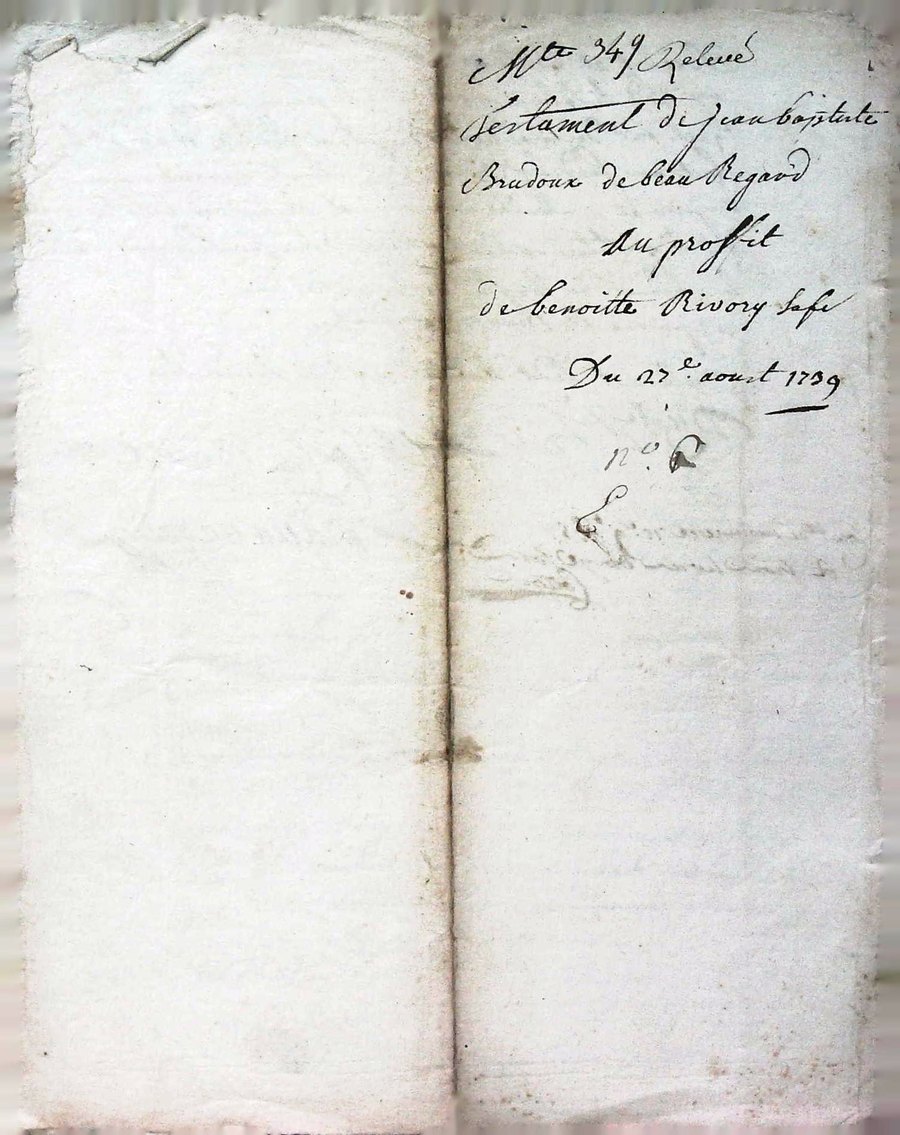 Mte 349 Relevé
Testament de jean baptiste
Brudoux de beau Regard
Au proffit
de benoitte Rivory Safe
Du 27e. aoust 1739
no. 6